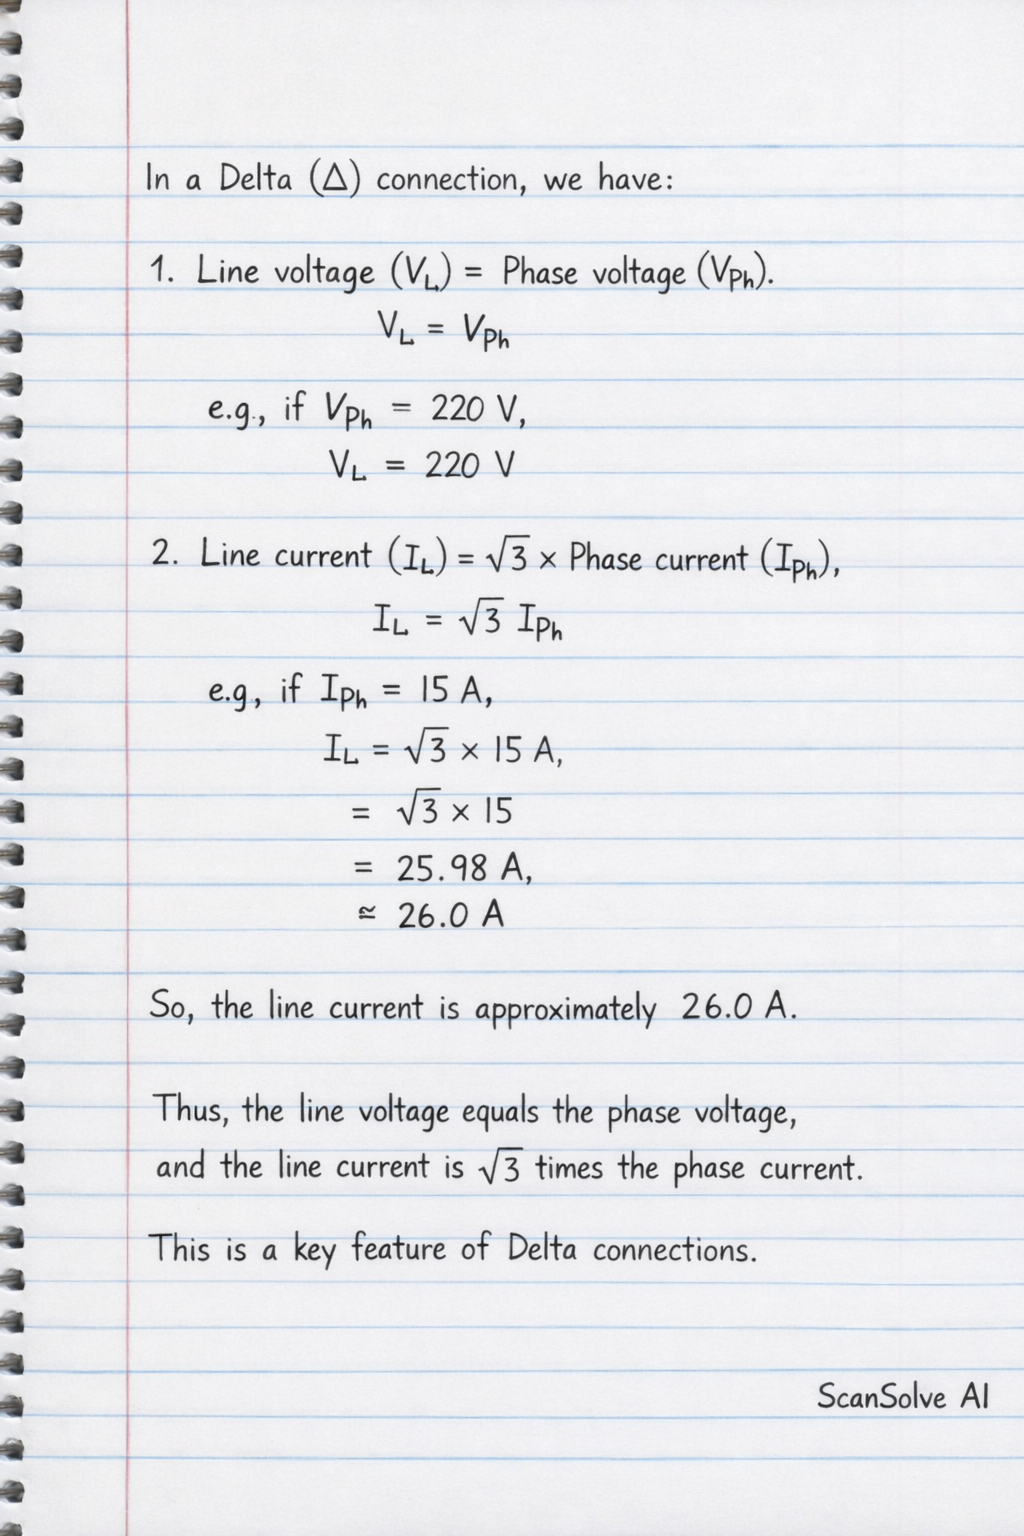 In a Delta (Δ) connection, we have:
1. Line voltage (V_L) = Phase voltage (V_Ph).
V_L = V_Ph
e.g., if V_Ph = 220 V,
V_L = 220 V
2. Line current (I_L) = √3 × Phase current (I_Ph),
I_L = √3 I_Ph
e.g, if I_Ph = 15 A,
I_L = √3 × 15 A,
= √3 × 15
= 25.98 A,
≃ 26.0 A
So, the line current is approximately 26.0 A.
Thus, the line voltage equals the phase voltage,
and the line current is √3 times the phase current.
This is a key feature of Delta connections.
ScanSolve AI